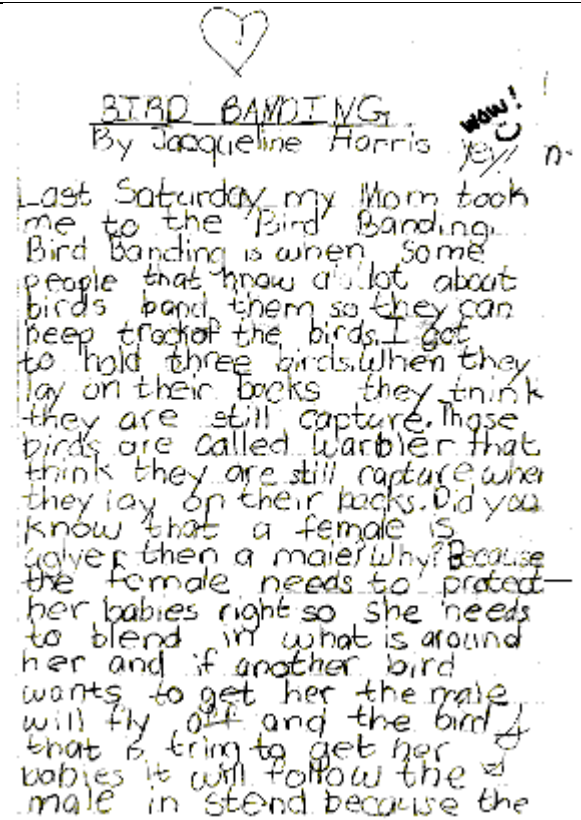 BIRD BANDING
By Jacqueline Harris
wow!
Last Saturday my Mom took
me to the Bird Banding.
Bird Banding is when some
people that know a lot about
birds band them so they can
keep track of the birds. I got
to hold three birds. When they
lay on their backs they think
they are still capture. Those
birds are called Warbler that
think they are still capture when
they lay on their backs. Did you
know that a female is
uglyer then a male! Why? Because
the female needs to protect
her babies right so she needs
to blend in what is around
her and if another bird
wants to get her the male
will fly off and the bird
that is tring to get her
babies it will follow the
male in stend because the